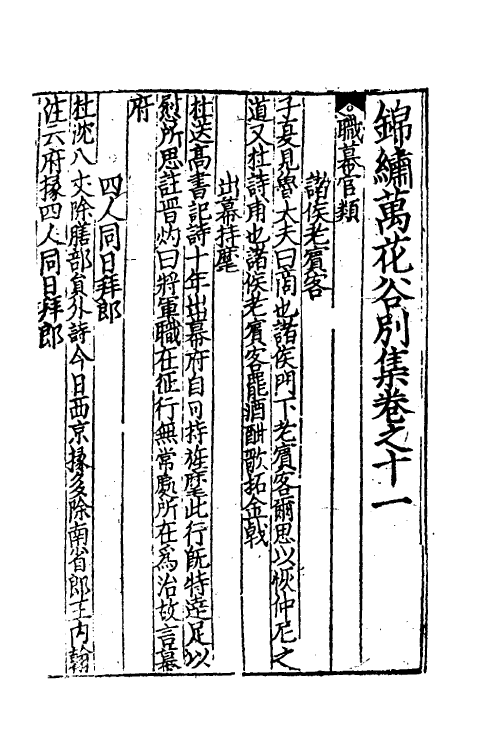 錦繡萬花谷別集卷之十一
職幕官類
諸侯老賓客
子夏見魯大夫曰商也諸侯門下老賓客爾思以恢仲尼之
道又杜詩甫也諸侯老賓客罷酒酣歌拓金戟
出幕持麾
杜送髙書記詩十年出幕府自可持旌麾此行旣特達足以
慰所思註晋灼曰將軍職在征行無常處所在爲治故言幕
府
四人同日拜郎
杜沈八丈除膳部員外詩今日西京掾多除南省郎王内翰
注云府掾四人同日拜郎